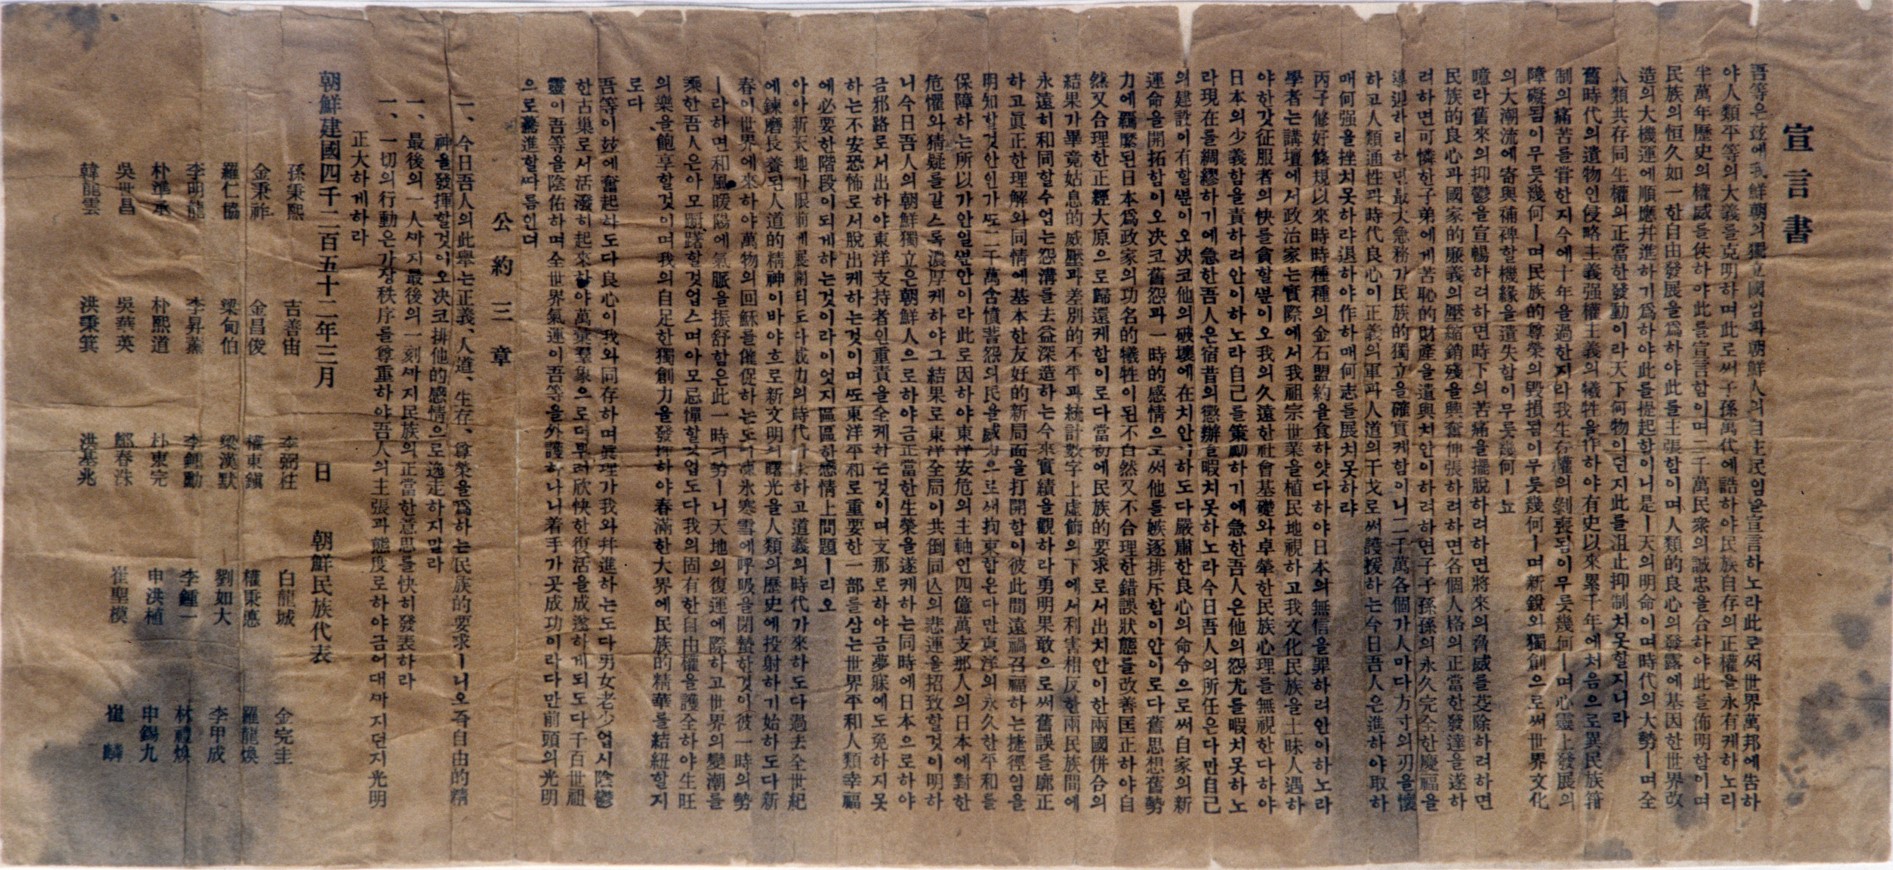 宣言書
吾等은玆에我鮮朝의獨立國임과朝鮮人의自主民임을宣言하노라此로써世界萬邦에告하
야人類平等의大義를克明하며此로써子孫萬代에誥하야民族自存의正權을永有케하노라
半萬年歷史의權威를仗하야此를宣言함이며二千萬民衆의誠忠을合하야此를佈明함이며
民族의恒久如一한自由發展을爲하야此를主張함이며人類的良心의發露에基因한世界改
造의大機運에順應幷進하기爲하야此를提起함이니是ㅣ天의明命이며時代의大勢ㅣ며全
人類共存同生權의正當한發動이라天下何物이던지此를沮止抑制치못할지니라
舊時代의遺物인侵略主義强權主義의犧牲을作하야有史以來累千年에처음으로異民族箝
制의痛苦를嘗한지今에十年을過한지라我生存權의剝喪됨이무릇幾何ㅣ며心靈上發展의
障礙됨이무릇幾何ㅣ며民族的尊榮의毁損됨이무릇幾何ㅣ며新銳와獨創으로써世界文化
의大潮流에寄與補裨할機緣을遺失함이무릇幾何ㅣ뇨
噫라舊來의抑鬱을宣暢하려하면時下의苦痛을擺脫하려하면將來의脅威를芟除하려하면
民族的良心과國家的廉義의壓縮銷殘을興奮伸張하려하면各個人格의正當한發達을遂하
려하면可憐한子弟에게苦恥的財產을遺與치안이하려하면子子孫孫의永久完全한慶福을
導迎하려하면最大急務가民族的獨立을確實케함이니二千萬各個가人마다方寸의刃을懷
하고人類通性과時代良心이正義의軍과人道의干戈로써護援하는今日吾人은進하야取하
매何强을挫치못하랴退하야作하매何志를展치못하랴
丙子修好條規以來時時種種의金石盟約을食하얏다하야日本의無信을罪하려안이하노라
學者는講壇에서政治家는實際에서我祖宗世業을植民地視하고我文化民族을土昧人遇하
야한갓征服者의快를貪할뿐이오我의久遠한社會基礎와卓犖한民族心理를無視한다하야
日本의少義함을責하려안이하노라自己를策勵하기에急한吾人은他의怨尤를暇치못하노
라現在를綢繆하기에急한吾人은宿昔의懲辦을暇치못하노라今日吾人의所任은다만自己
의建設이有할뿐이오决코他의破壞에在치안이하도다嚴肅한良心의命令으로써自家의新
運命을開拓함이오决코舊怨과一時的感情으로써他를嫉逐排斥함이안이로다舊思想舊勢
力에羈縻된日本爲政家의功名的犧牲이된不自然又不合理한錯誤狀態를改善匡正하야自
然又合理한正經大原으로歸還케함이로다當初에民族的要求로서出치안이한兩國併合의
結果가畢竟姑息的威壓과差別的不平과統計數字上虛飾의下에서利害相反한兩民族間에
永遠히和同할수업는怨溝를去益深造하는今來實績을觀하라勇明果敢으로써舊誤를廓正
하고眞正한理解와同情에基本한友好的新局面을打開함이彼此間遠禍召福하는捷徑임을
明知할것안인가또二千萬含憤蓄怨의民을威力으로써拘束함은다만東洋의永久한平和를
保障하는所以가안일뿐안이라此로因하야東洋安危의主軸인四億萬支那人의日本에對한
危懼와猜疑를갈스록濃厚케하야그結果로東洋全局이共倒同亡의悲運을招致할것이明하
니今日吾人의朝鮮獨立은朝鮮人으로하야금正當한生榮을遂케하는同時에日本으로하야
금邪路로서出하야東洋支持者인重責을全케하는것이며支那로하야금夢寐에도免하지못
하는不安恐怖로서脫出케하는것이며또東洋平和로重要한一部를삼는世界平和人類幸福
에必要한階段이되게하는것이라이엇지區區한感情上問題ㅣ리오
아아新天地가眼前에展開되도다威力의時代가去하고道義의時代가來하도다過去全世紀
에鍊磨長養된人道的精神이바야흐로新文明의曙光을人類의歷史에投射하기始하도다新
春이世界에來하야萬物의回穌를催促하는도다凍氷寒雪에呼吸을閉蟄한것이彼一時의勢
ㅣ라하면和風暖陽에氣脈을振舒함은此一時의勢ㅣ니天地의復運에際하고世界의變潮를
乘한吾人은아모躊躇할것업스며아모忌憚할것업도다我의固有한自由權을護全하야生旺
의樂을飽享할것이며我의自足한獨創力을發揮하야春滿한大界에民族的精華를結紐할지
로다
吾等이玆에奮起하도다良心이我와同存하며眞理가我와幷進하는도다男女老少업시陰鬱
한古巢로서活潑히起來하야萬彙羣象으로더부러欣快한復活을成遂하게되도다千百世祖
靈이吾等을陰佑하며全世界氣運이吾等을外護하나니着手가곳成功이라다만前頭의光明
으로驀進할따름인뎌
公約三章
一、今日吾人의此擧는正義、人道、生存、尊榮을爲하는民族的要求ㅣ니오즉自由的精
神을發揮할것이오决코排他的感情으로逸走하지말라
一、最後의一人까지最後의一刻까지民族의正當한意思를快히發表하라
一、一切의行動은가장秩序를尊重하야吾人의主張과態度로하야금어대까지던지光明
正大하게하라
朝鮮建國四千二百五十二年三月　日　朝鮮民族代表
孫秉熙　吉善宙　李弼柱　白龍城　金完圭
金秉祚　金昌俊　權東鎭　權秉悳　羅龍煥
羅仁協　梁甸伯　梁漢默　劉如大　李甲成
李明龍　李昇薰　李鍾勳　李鍾一　林禮煥
朴準承　朴熙道　朴東完　申洪植　申錫九
吳世昌　吳華英　鄭春洙　崔聖模　崔麟
韓龍雲　洪秉箕　洪基兆